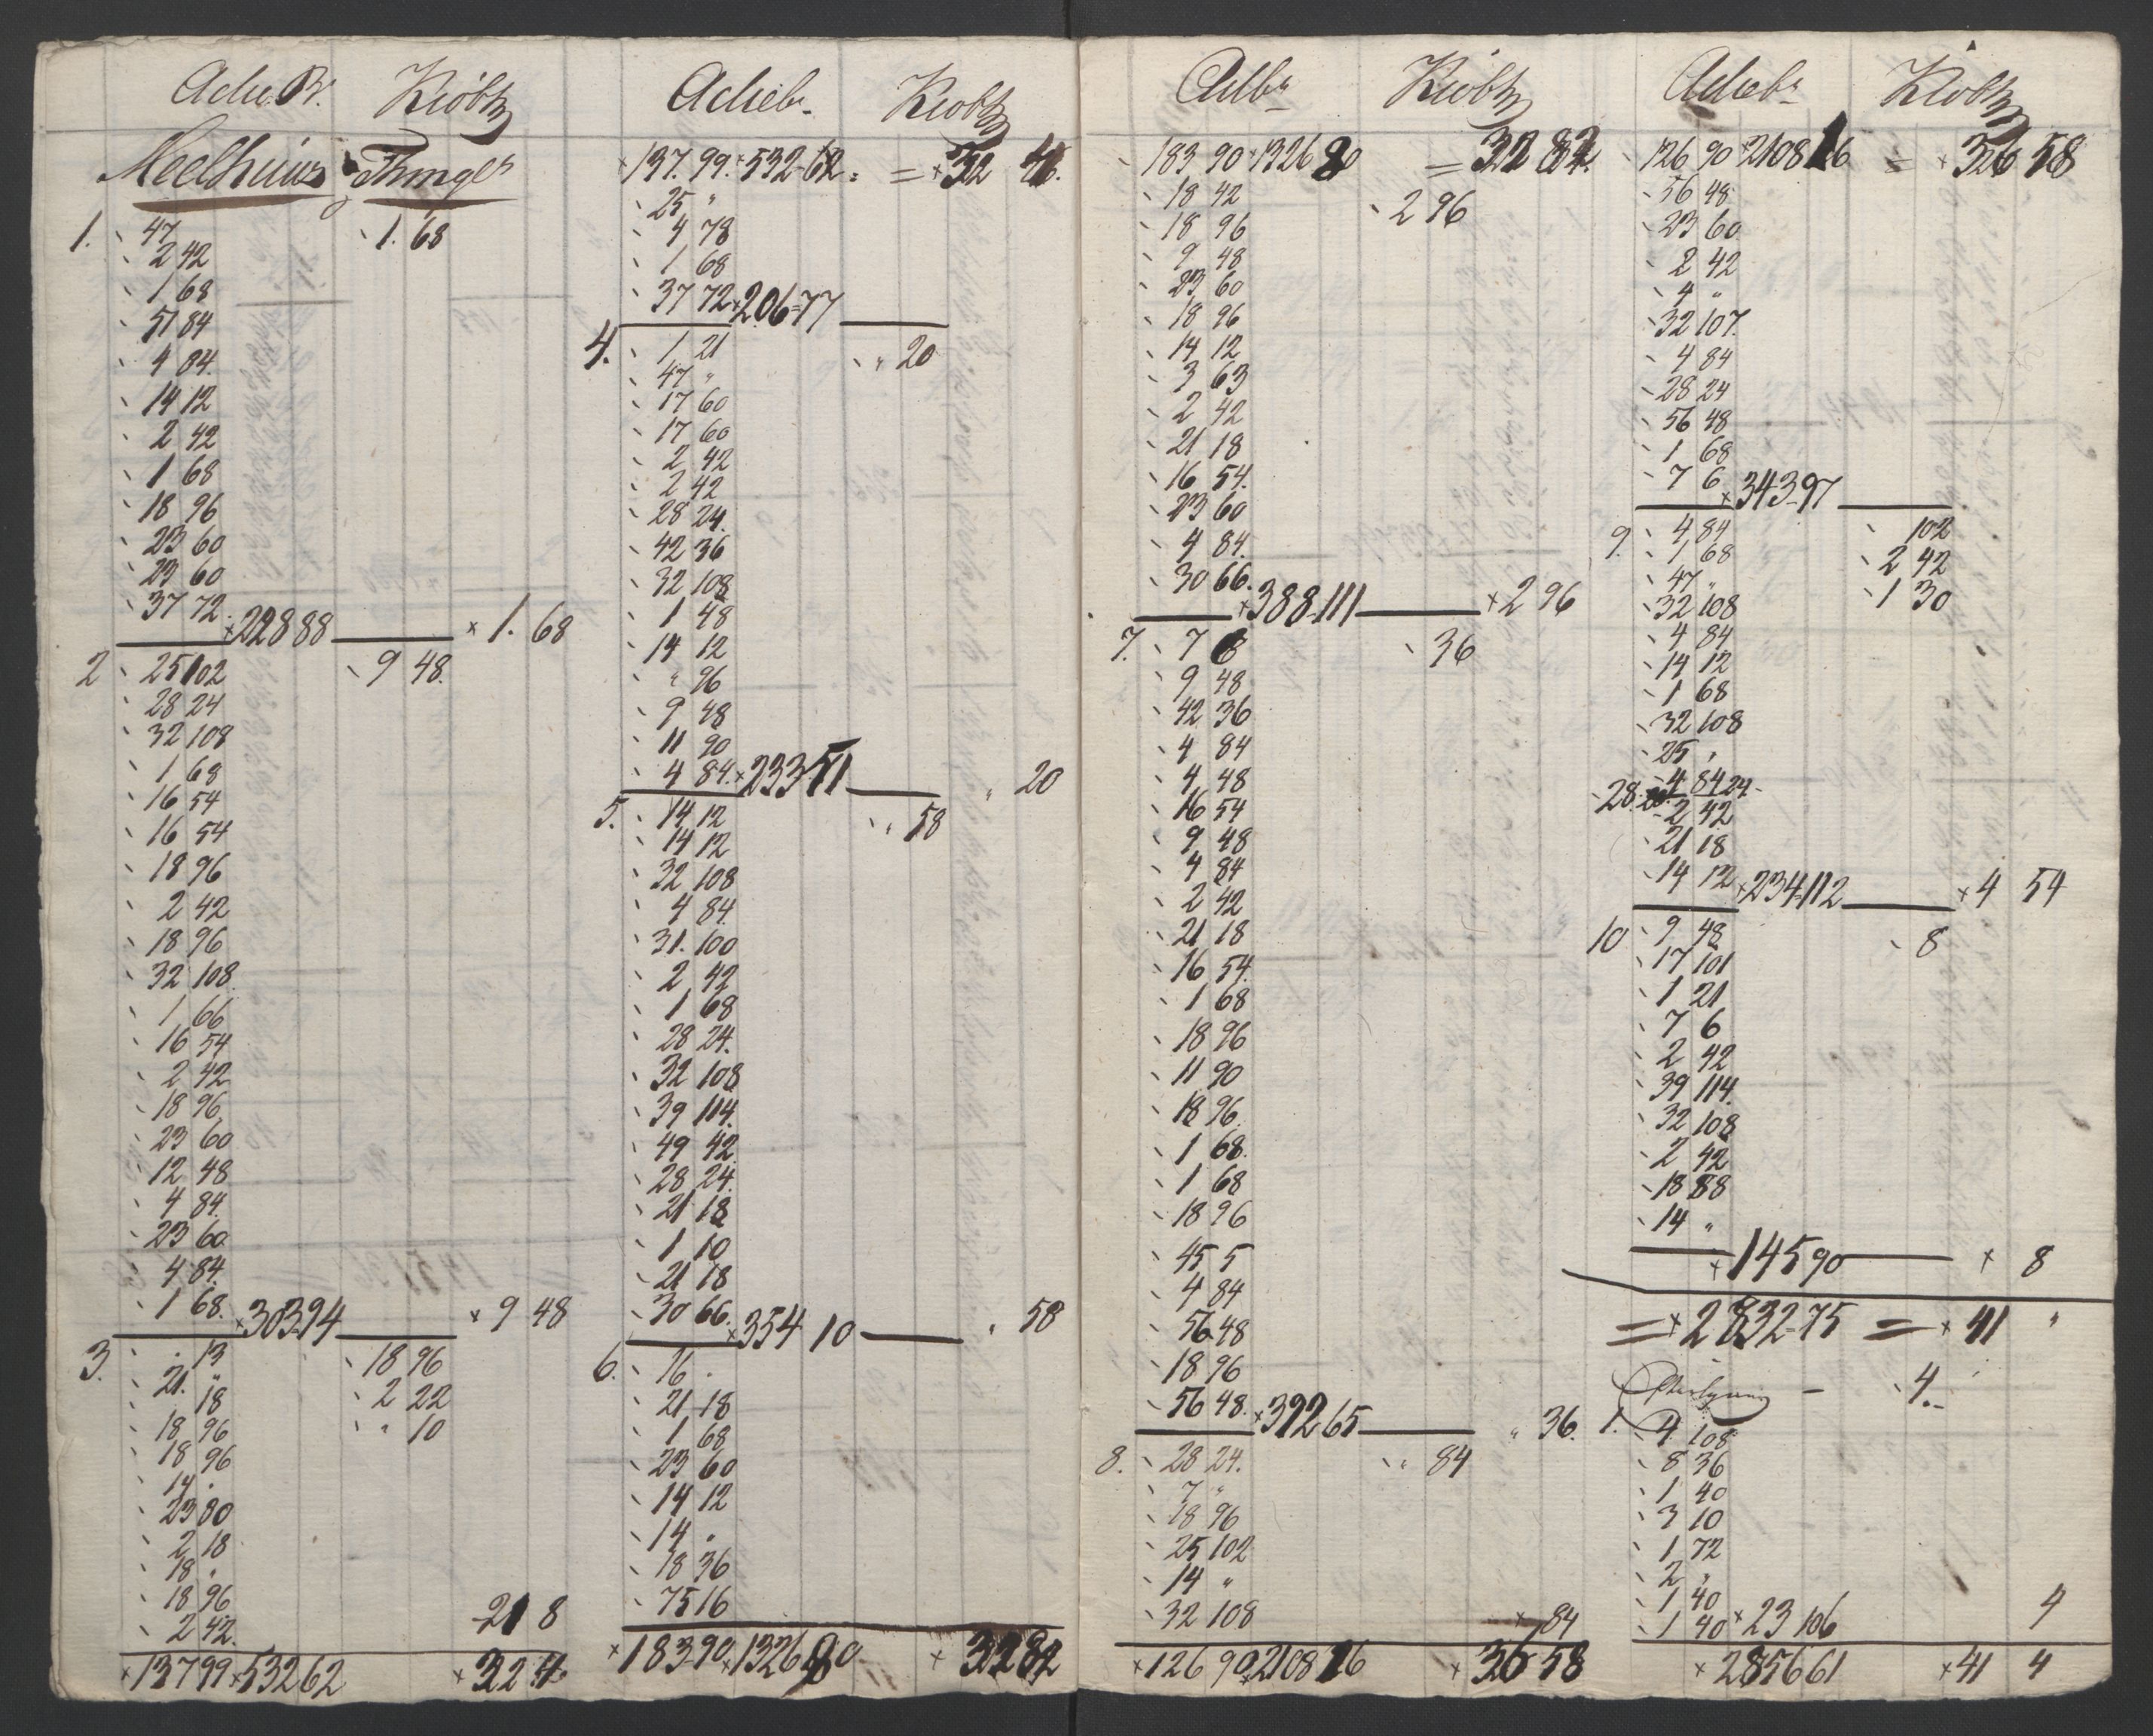 Kiöbst
Meelhuus Thinget
1. 47 1. 68
2 42
1 68
51 84
4 84.
14 12
2 42
1 68
18 96
23 60
23 60
37 72. × 228 88 × 1. 68
2 25 102 9 48.
28 24
32 108
1 68
16 54
16 54
18 96
2 42
18 96
32 108.
1 66
16 54
2 42
18 96
23 60
12 48
4 84.
23 60
4 84.
1 68. × 303-94 × 9 48
3. 13 18 96
21. " 2 22
18 " 10
18 96
18 96
14 .
23 80
2 18
18 .
18 96 21 8
2 42.
× 137 99 × 532 62 × 32 4
Kiobst
× 137. 99. × 532-62. = × 32 4.
25 "
4 78
1 68
37 72 × 206-77
4. 1 21 " 20
47 "
17 60
17 60
2 42
2 42
28 24.
42 36
32 108
1 48
14 12
" 96
9 48
11 90
4 84. × 233 51 " 20
5. 14 12 " 58
14 12
32 108
4 84.
31. 100
2 42
1 68
28 24.
32 108
39 114.
49 42
28 24.
21 18
1 10
21 18
30 66. × 354 10 " 58
6. 16 .
21-18
1 68
23 60
14 12
14 .
18 36
75 16
× 183-90 × 1326 80 × 32 82
Kiobst
183 90 × 1326 80 = 32 82.
18 42 2 96
18 96
9 48
23 60
18 96
14 12
3 63
2 42
21 18
16 54.
23 60
4 84.
30 66. × 388-111 × 2 96
7. 7 6 36
9 48
42 36
4 84
4 48
16 54
9 48
4 84
2 42
21 18
16 54.
1 68
18 96
11 90
18 96
1 68.
1 68
18 96
45 5
4 84
56 48
18 96
56 48. × 392 65 " 36.
8. 28 24. " 84
7 "
18 96
25 102
14 "
32 108 × 84
× 126 90 × 2108 16 × 36 58
Kiobst
126 90 × 2108 16 = × 36 58
56 48
23 60
2 42
4 "
32 107.
4 84
28 24
56 48
1 68
7 6 × 343-97
9. 4 84 102
1 68 2 42
47 " 1 30
32 108
4 84
14 12
1 68
32 108
25 "
28. 4 84 24
2 42
21 18
14 12 × 234 112 × 4 54
10 9 48 8
17 101
1 21
7 6
2 42
39 114.
32 108
2 42
18 88
14 "
× 145 90 × 8
= × 2832-75 = × 41 "
4.
1. 4 108
8 36
1 40
3 10
1 72
2 "
1 40
1 40 × 23 106 4
× 2856 61 × 41 4